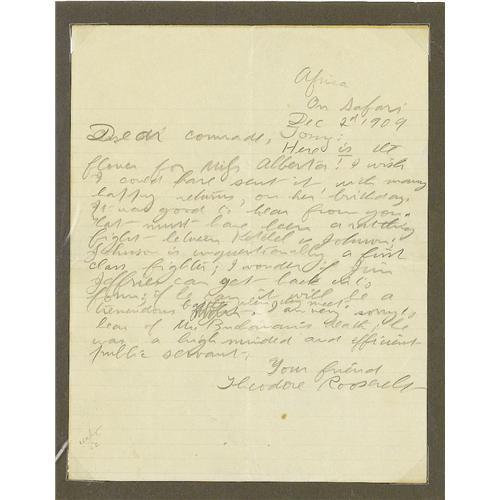 Africa
On safari
Dec 2nd 1909
Dear comrade, Tony:
Here is the
flower for Miss Alberta! I wish
I could have sent it, with many
happy returns, on her birthday.
It was good to hear from you.
That must have been a rattling
fight between Ketchel & Johnson;
Johnson is unquestionably a first
class fighter; I wonder if Jim
Jeffries can get back into
form; if he can it will be a
tremendous battle when they meet. I am very sorry to
hear of Mr. Buchanan's death; he
was a high minded and efficient
public servant.
Your friend
Theodore Roosevelt